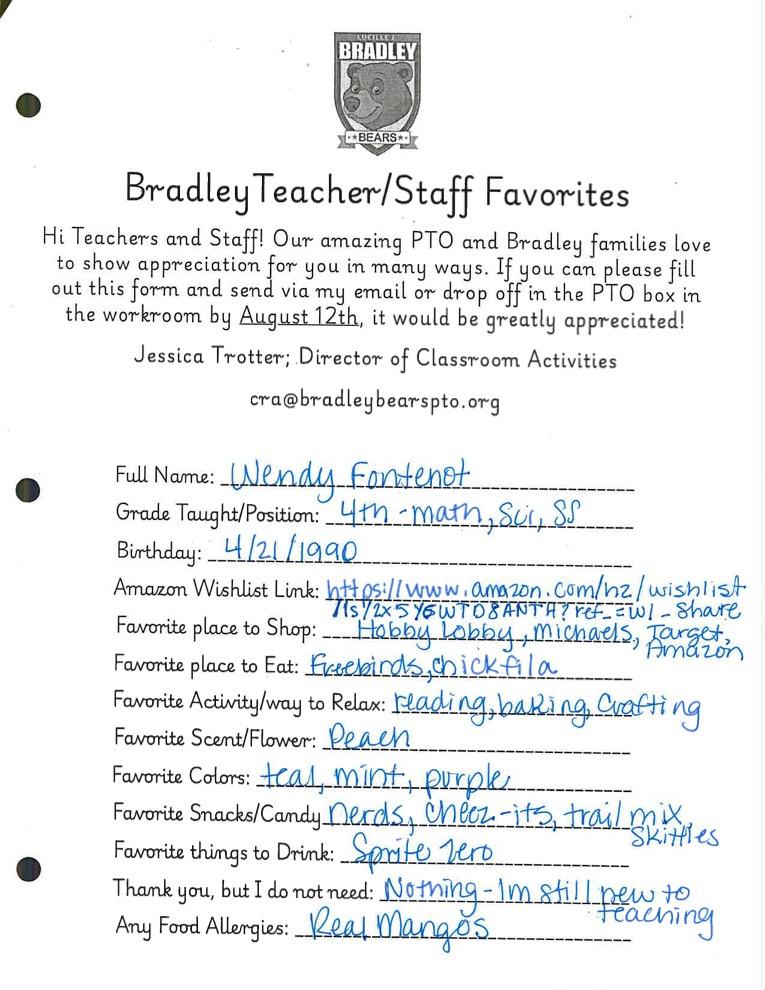 LUCILLE J
BRADLEY
BEARS
Bradley Teacher/Staff Favorites
Hi Teachers and Staff! Our amazing PTO and Bradley families love
to show appreciation for you in many ways. If you can please fill
out this form and send via my email or drop off in the PTO box in
the workroom by August 12th, it would be greatly appreciated!
Jessica Trotter; Director of Classroom Activities
cra@bradleybearspto.org
Full Name: Wendy Fontenot
Grade Taught/Position: 4th - math, Sci, SS
Birthday: 4/21/1990
Amazon Wishlist Link: https://www.amazon.com/hz/wishlist
/ls/2x5Y6WTO8ANTH?ref_=wl_share
Favorite place to Shop: Hobby Lobby, Michaels, Target,
Amazon
Favorite place to Eat: Freebirds, chickfila
Favorite Activity/way to Relax: reading, baking, Crafting
Favorite Scent/Flower: Peach
Favorite Colors: teal, mint, purple
Favorite Snacks/Candy nerds, cheez-its, trail mix,
Skittles
Favorite things to Drink: Sprite zero
Thank you, but I do not need: Nothing - Im still new to
teaching
Any Food Allergies: Real Mangos